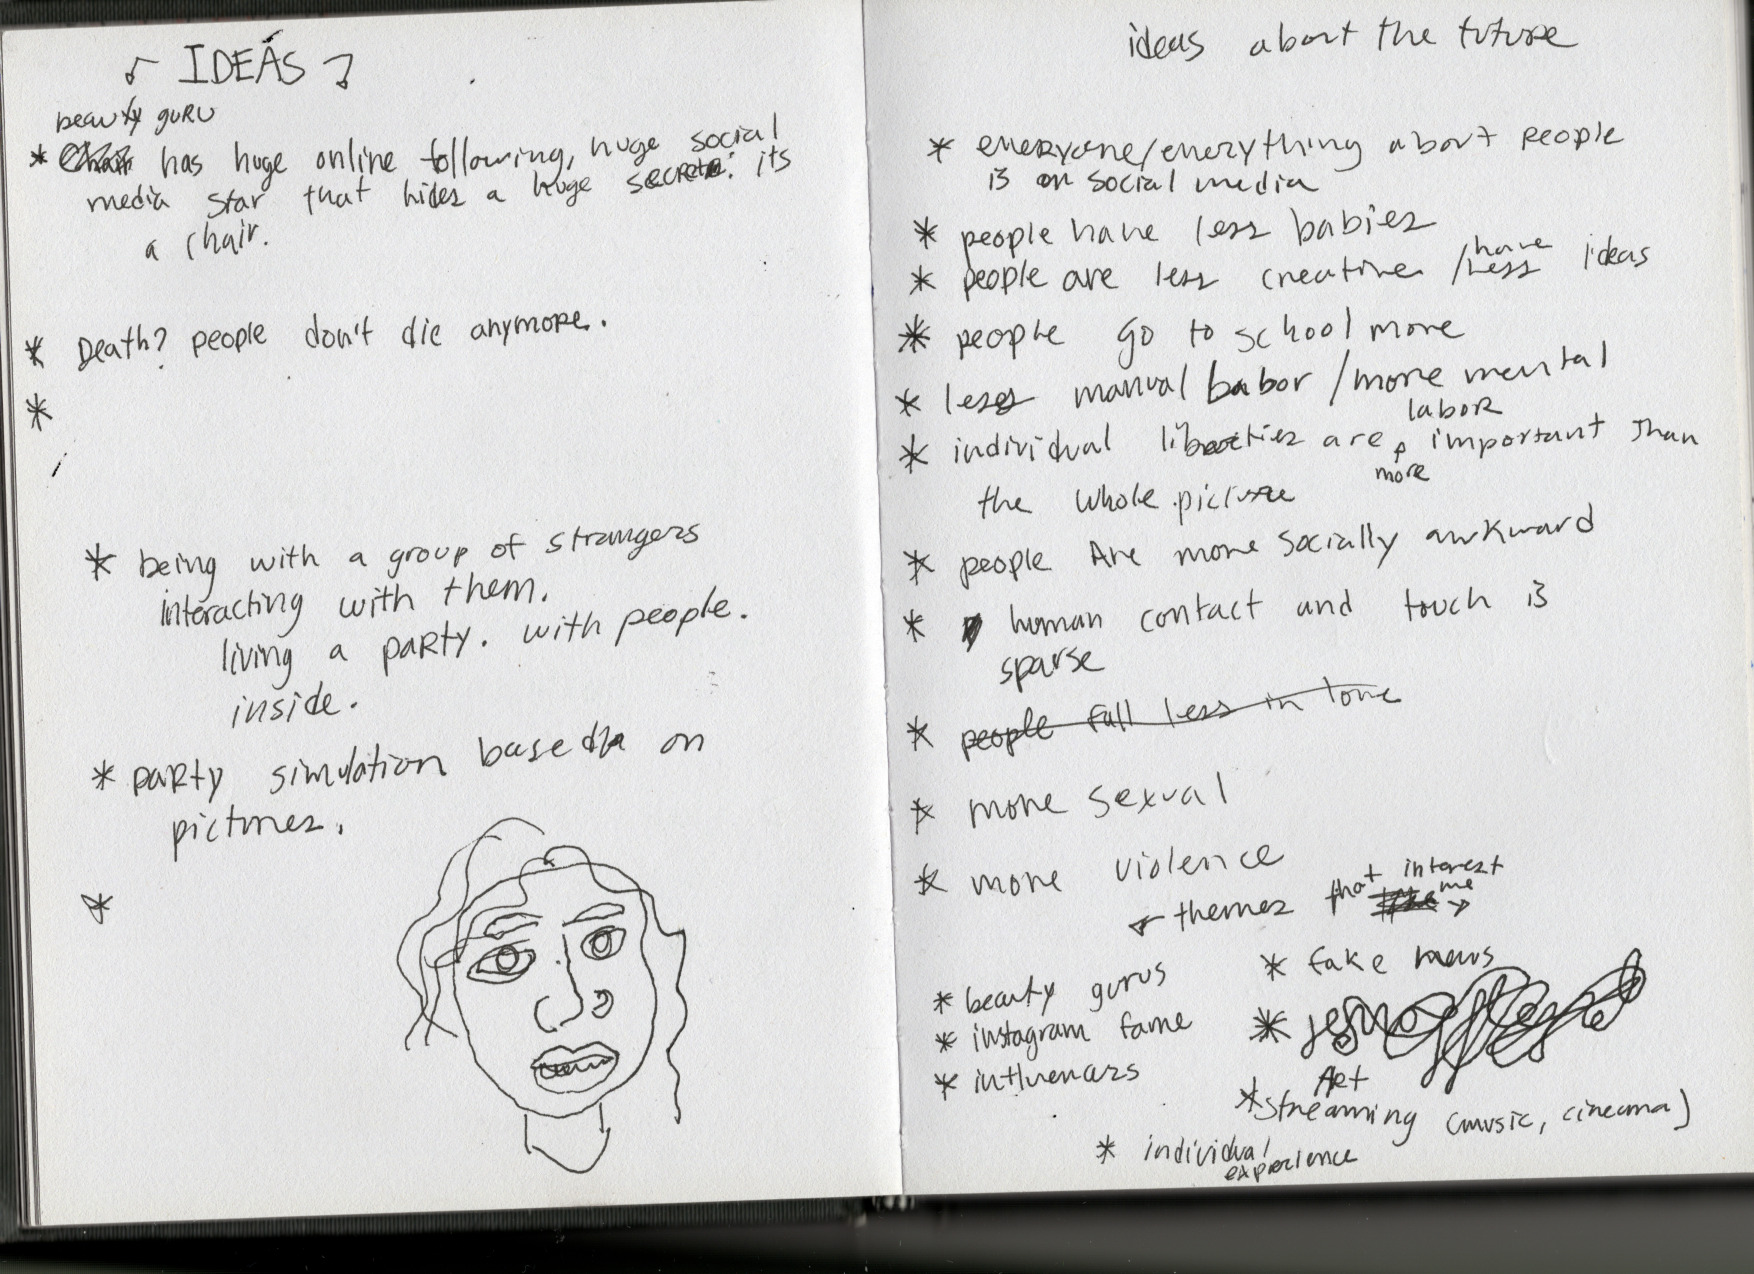 IDEAS
beauty guru
* Chair has huge online following, huge social
media star that hides a huge secret: its
a chair.
* Death? people don't die anymore.
*
* being with a group of strangers
interacting with them.
living a party. with people.
inside.
* party simulation based on
pictures.
*
ideas about the future
* everyone/everything about people
is on social media
* people have less babies
* people are less creative / have less ideas
* people go to school more
* less manual labor / more mental
labor
* individual liberties are more important than
the whole picture
* people Are more socially awkward
* human contact and touch is
sparse
* people fall less in love
* more sexual
* more violence
themes that interest
me
* beauty gurus
* instagram fame
* influencers
* fake news
*
Art
* streaming (music, cinema)
* individual
experience